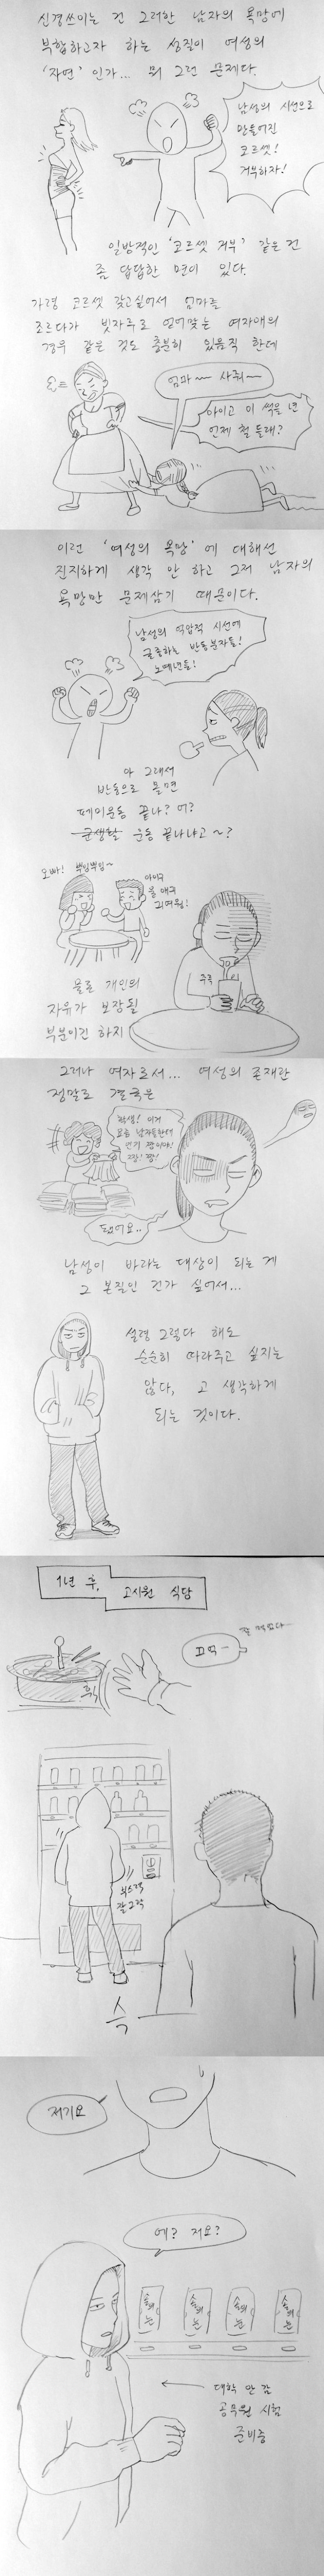 신경쓰이는 건 그러한 남자의 욕망에
부합하고자 하는 성질이 여성의
'자연' 인가... 뭐 그런 문제다.
남성의 시선으로
만들어진
코르셋!
거부하자!
일방적인 '코르셋 거부' 같은 건
좀 답답한 면이 있다.
가령 코르셋 갖고싶어서 엄마를
조르다가 빗자루로 얻어맞는 여자애의
경우 같은 것도 충분히 있음직 한데
엄마~ 사줘~
아이고 이 썩을 년
언제 철 들래?
이런 '여성의 욕망'에 대해선
진지하게 생각 안 하고 그저 남자의
욕망만 문제삼기 때문이다.
남성의 억압적 시선에
굴종하는 반동분자들!
노예년들!
아 그래서
반동으로 몰면
페미운동 끝나? 어?
운동 끝나냐고~?
오빠! 뿌잉뿌잉~
아이구
울 애구
귀여워!
주륵
물론 개인의
자유가 보장될
부분이긴 하지
그러나 여자로서... 여성의 존재란
정말로 결국은
학생! 이거
요즘 남자들한테
인기 짱이야!
짱! 짱!
됐어요..
남성이 바라는 대상이 되는 게
그 본질인 건가 싶어서...
설령 그렇다 해도
순순히 따라주고 싶지는
않다, 고 생각하게
되는 것이다.
1년 후, 고시원 식당
잘 먹었다
끄억~
휙
부스럭
잘그락
슥
저기요
에? 저요?
솔의눈 솔의눈 솔의눈 솔의눈
← 대학 안 감
공무원 시험
준비중